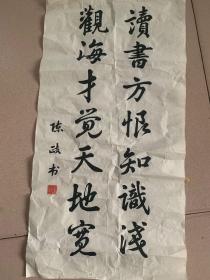 讀書方恨知識淺
觀海才觉天地宽
陈政书